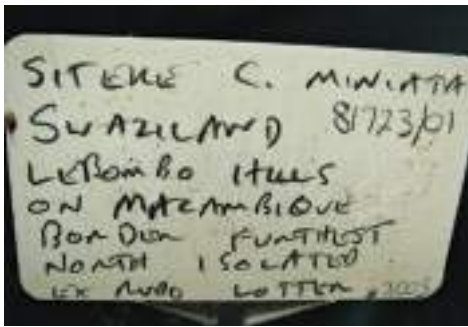 SITEKE C. MINIATA
SWAZILAND 81723/01
LEBOMBO HILLS
ON MAZAMBIQUE
BORDER FURTHEST
NORTH ISOLATED
EX RUDO LOTTER 2003